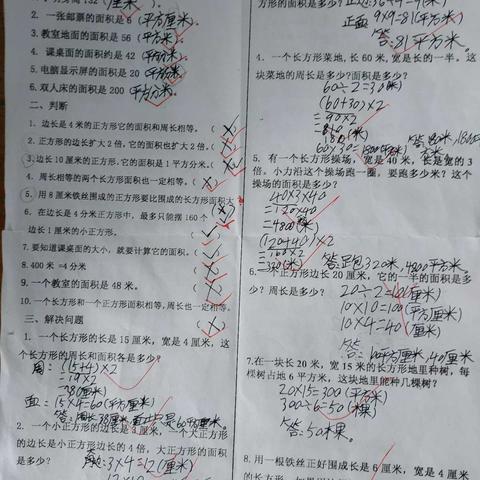 2. 一张邮票的面积是6（平方厘米）
3. 教室地面的面积是56（平方米）
4. 课桌面的面积约是42（平方分米）
5. 电脑显示屏的面积是20（平方分米）
6. 双人床的面积是200（平方分米）
二、判断
1. 边长是4米的正方形它的面积和周长相等。（×）
2. 正方形的边长扩大2倍，它的面积也扩大2倍。（×）
3. 边长10厘米的正方形，它的面积是1平方分米。（√）
4. 周长相等的两个长方形面积也一定相等。（×）
5. 用8厘米铁丝围成的正方形要比围成的长方形面积大（×）
6. 在边长是4分米正方形中，最多只能摆160个
边长1厘米的小正方形。（
7. 要知道课桌面的大小，就要计算它的面积。（√）
8. 400米=4分米（×）
9. 一个教室的面积是48米。（×）
10. 一个长方形和一个正方形面积相等，周长也一定相等。（×）
三、解决问题
1. 一个长方形的长是15厘米，宽是4厘米，这
个长方形的周长和面积各是多少？
周：(15+4)×2
=19×2
=38(厘米)
面：15×4=60(平方厘米)
答：周长38厘米 面积是60平方厘米。
2. 一个小正方形的边长是4厘米，一个大正方形
的边长是小正方形边长的4倍，大正方形的面积
是多少？
3×4=12(厘米)
方形的面积是多少？
正面 9×9=81(平方米)
答：81平方米。
4. 一个长方形菜地，长60米，宽是长的一半。这
块菜地的周长是多少？面积是多少？
60÷2=30(米)
(60+30)×2
=90×2
=180(米)
60×30=1800(平方米)
5. 有一个长方形操场，宽是40米，长是宽的3
倍。小力沿这个操场跑一圈，要跑多少米？这个
操场的面积是多少？
40×3×40
=120×40
=4800(米)
(120+40)×2
=160×2
=320(米)
320米，4800平方米。
6. 一个正方形边长20厘米，它的一半的面积是多
少？周长是多少？
20÷2=10(厘米)
10×10=100(平方厘米)
10×4=40(厘米)
答：100平方厘米，40厘米
7. 在一块长20米，宽15米的长方形地里种树，每
棵树占地6平方米，这块地里能种几棵树？
20×15=300(平方米)
300÷6=50(棵)
答：50棵。
8. 用一根铁丝正好围成长是6厘米，宽是4厘米